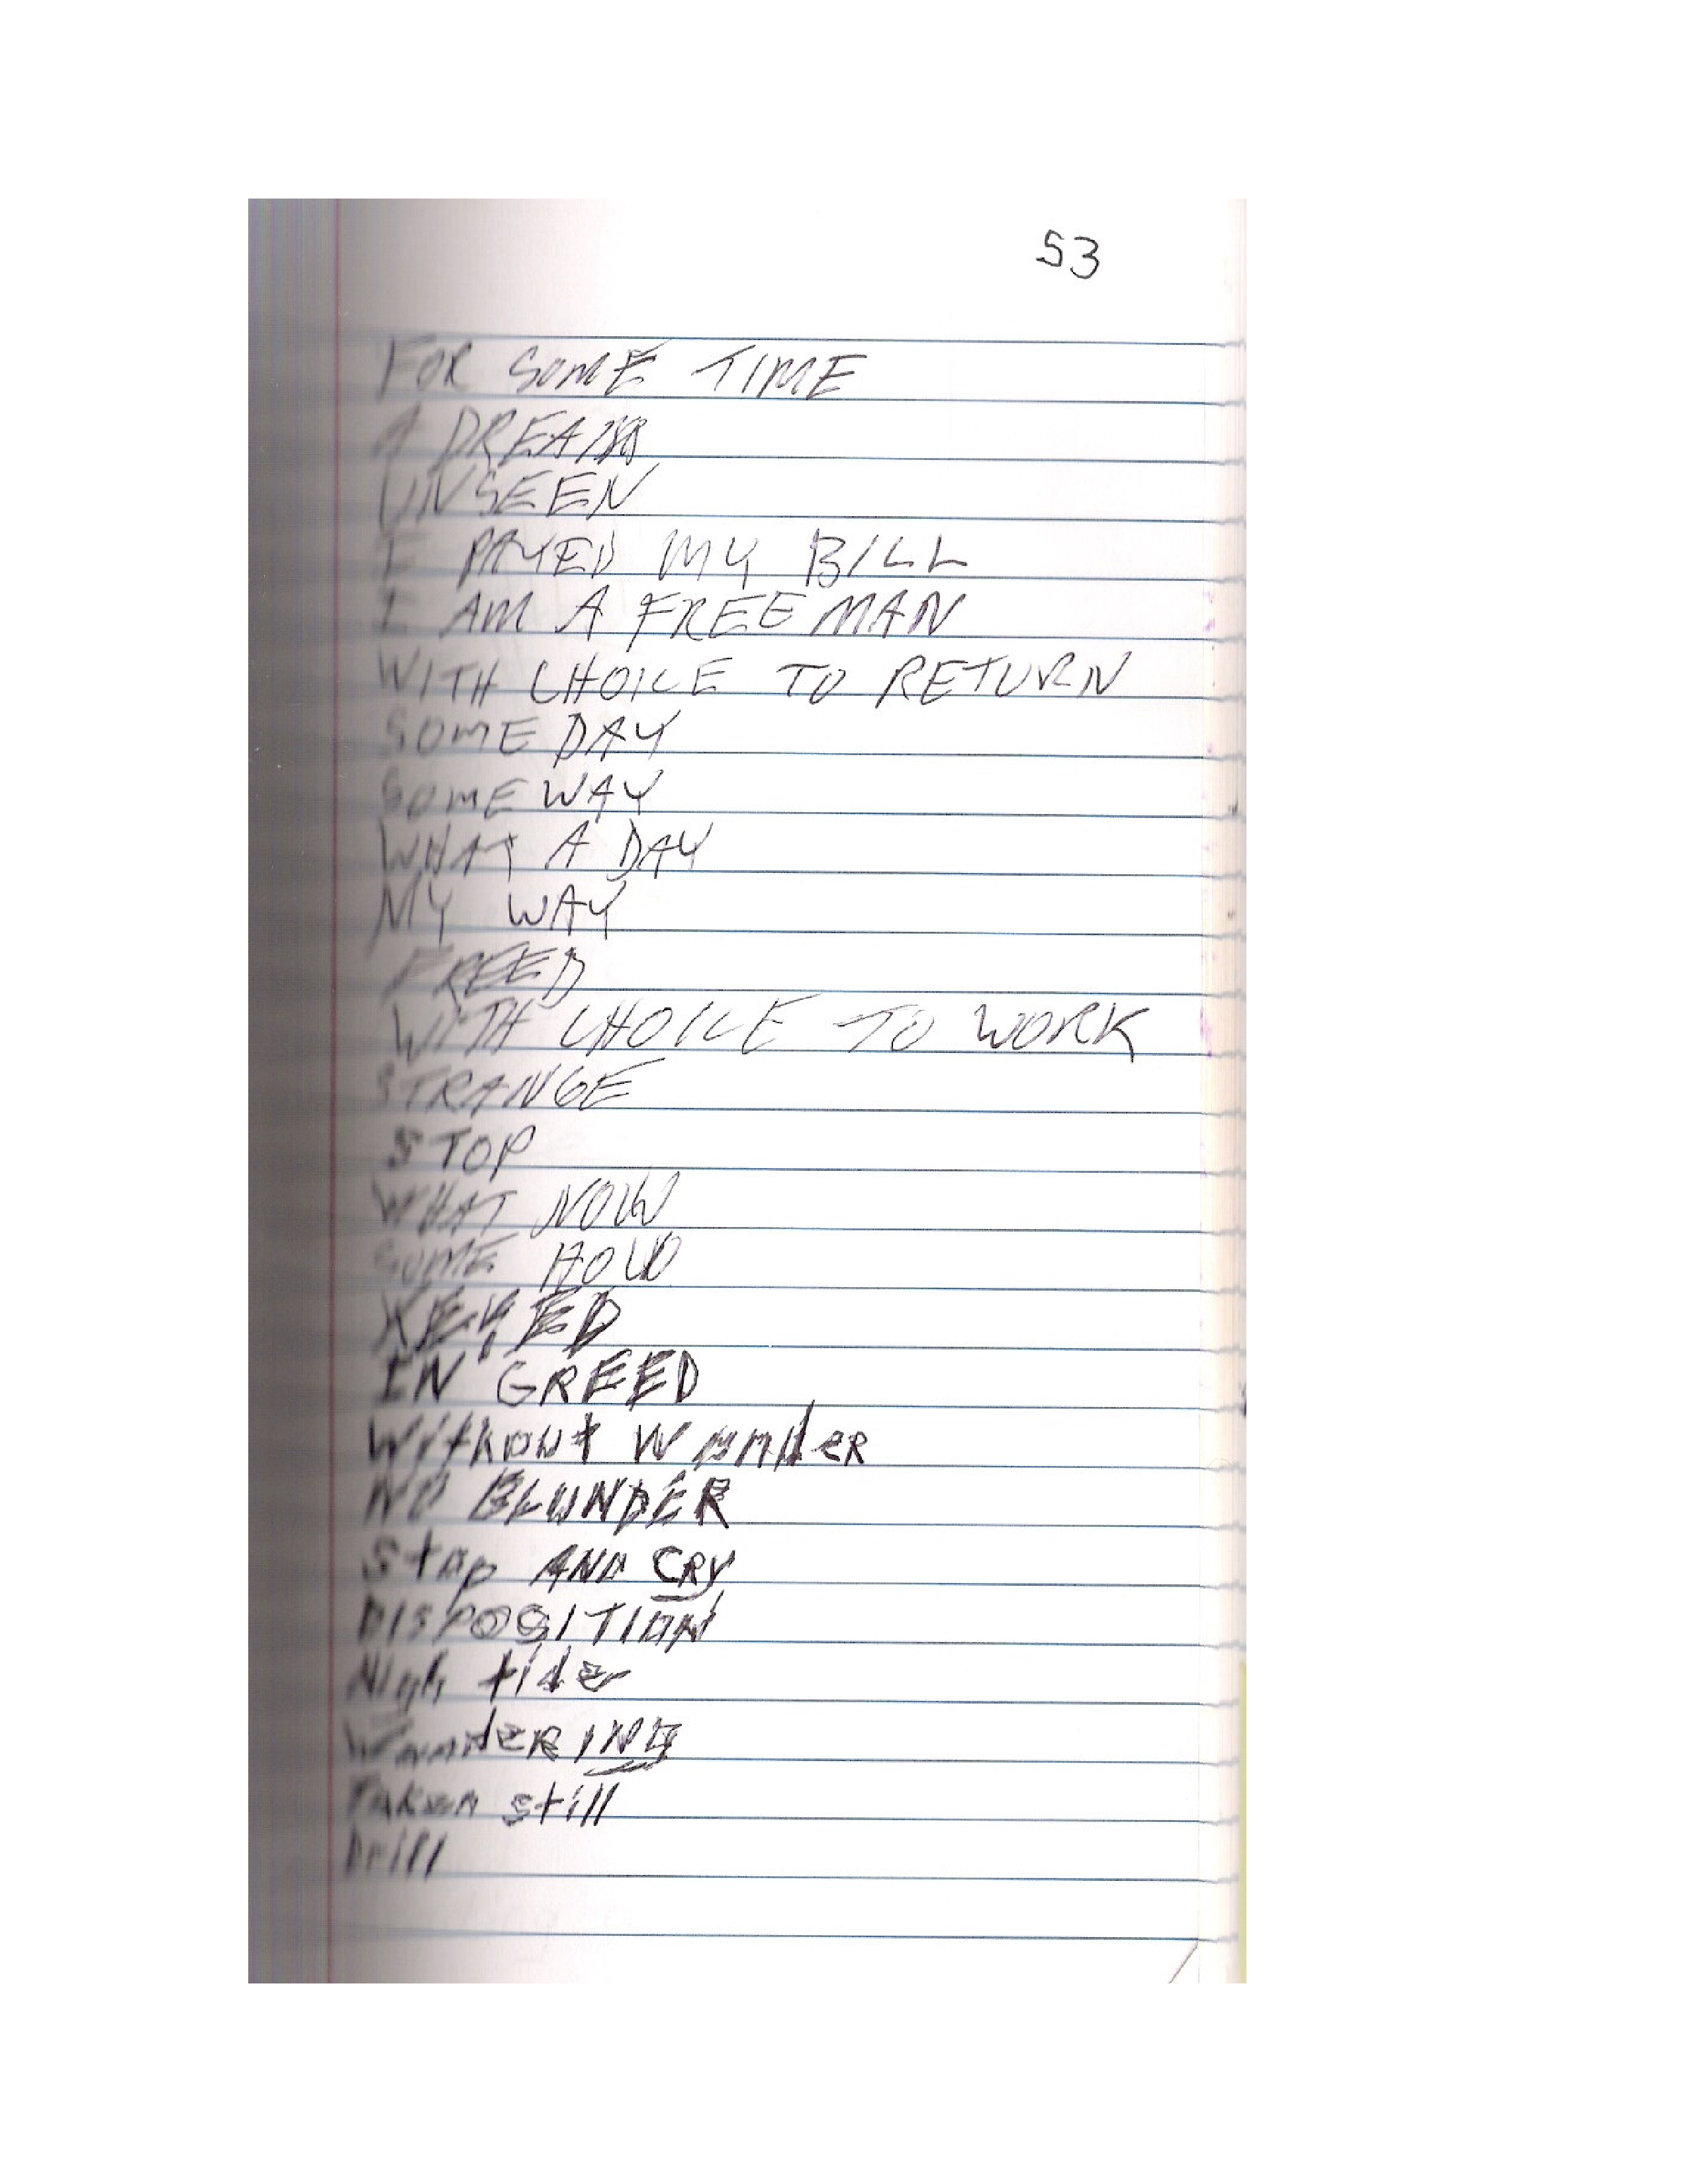 53
FOR SOME TIME
A DREAM
UNSEEN
I PAYED MY BILL
I AM A FREE MAN
WITH CHOICE TO RETURN
SOME DAY
SOME WAY
WHAT A DAY
MY WAY
FREED
WITH CHOICE TO WORK
STRANGE
STOP
WHAT NOW
SOME HOW
KEYED
IN GREED
Without WondeR
NO BLUNDER
Stop AND CRY
DISPOSITION
High tide
WondeRING
Taken still
Drill